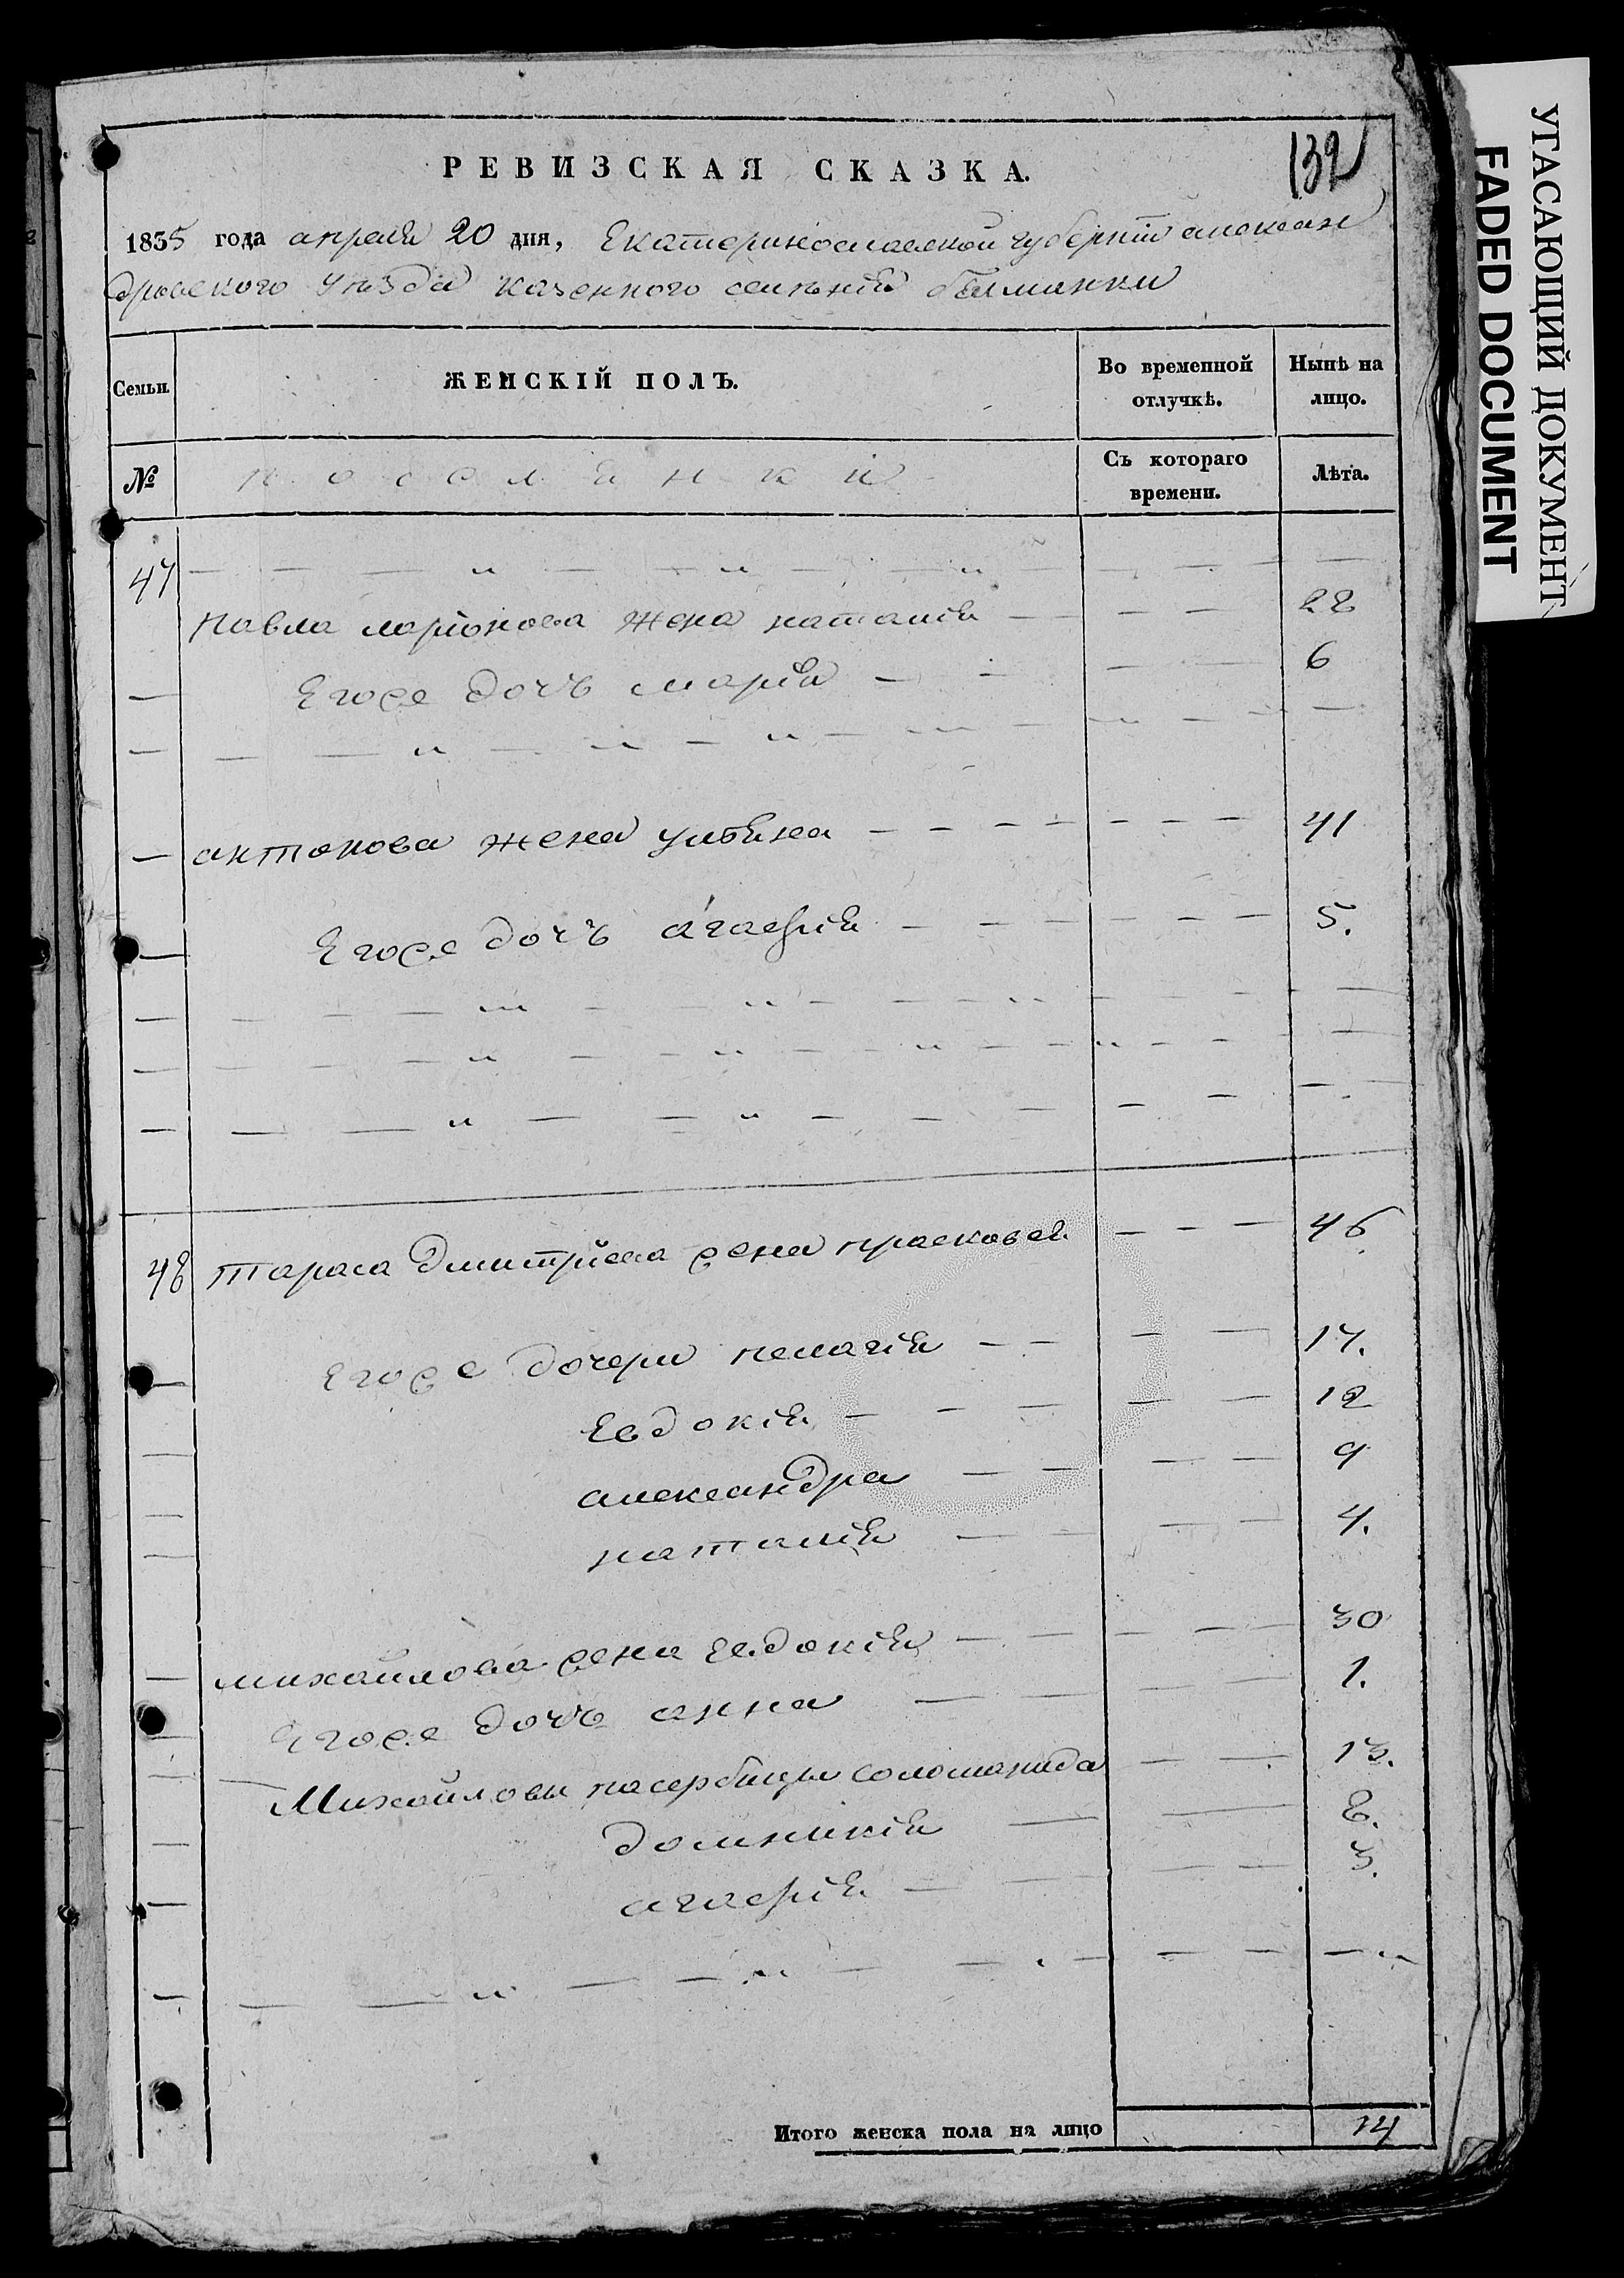 132
РЕВИЗСКАЯ СКАЗКА.
1835 года апреля 20 дня, Екатеринославской губернїи алексан
дровского уезда казенного селенїя белманки
Семьи.
ЖЕНСКІЙ ПОЛЪ.
Во временной отлучкѣ.
Нынѣ на лицо.
№
поселянки
Съ котораго времени.
Лѣта.
47
павла ларїонова жена наталїя 28
Егоже дочь марїя 6
антонова жена улияна 41
Егоже дочь агафїя 5.
48 тараса дмитрїева жена прасковея 46
Егоже дочери пелагїя 17.
Евдокїя 12
александра 9
наталїя 4.
михайлова жена Евдокїя 30
Егоже дочь анна 1.
Михайловы пасербицы соломанида 13.
домникїя 8.
агафїя 3.
Итого женска пола на лицо 14
УГАСАЮЩИЙ ДОКУМЕНТ
FADED DOCUMENT